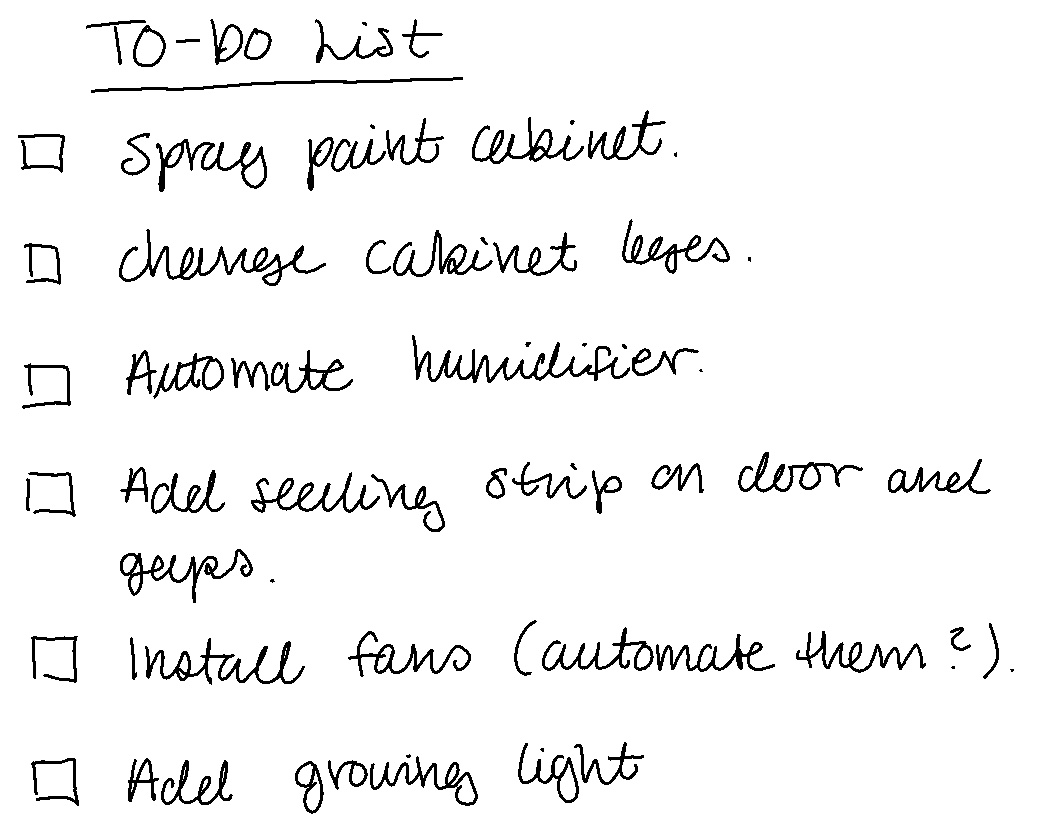 To-Do List
Spray paint cabinet.
Change cabinet leges.
Automate humidifier.
Add sealing strip on door and
gaps.
Install fans (automate them?).
Add growing light